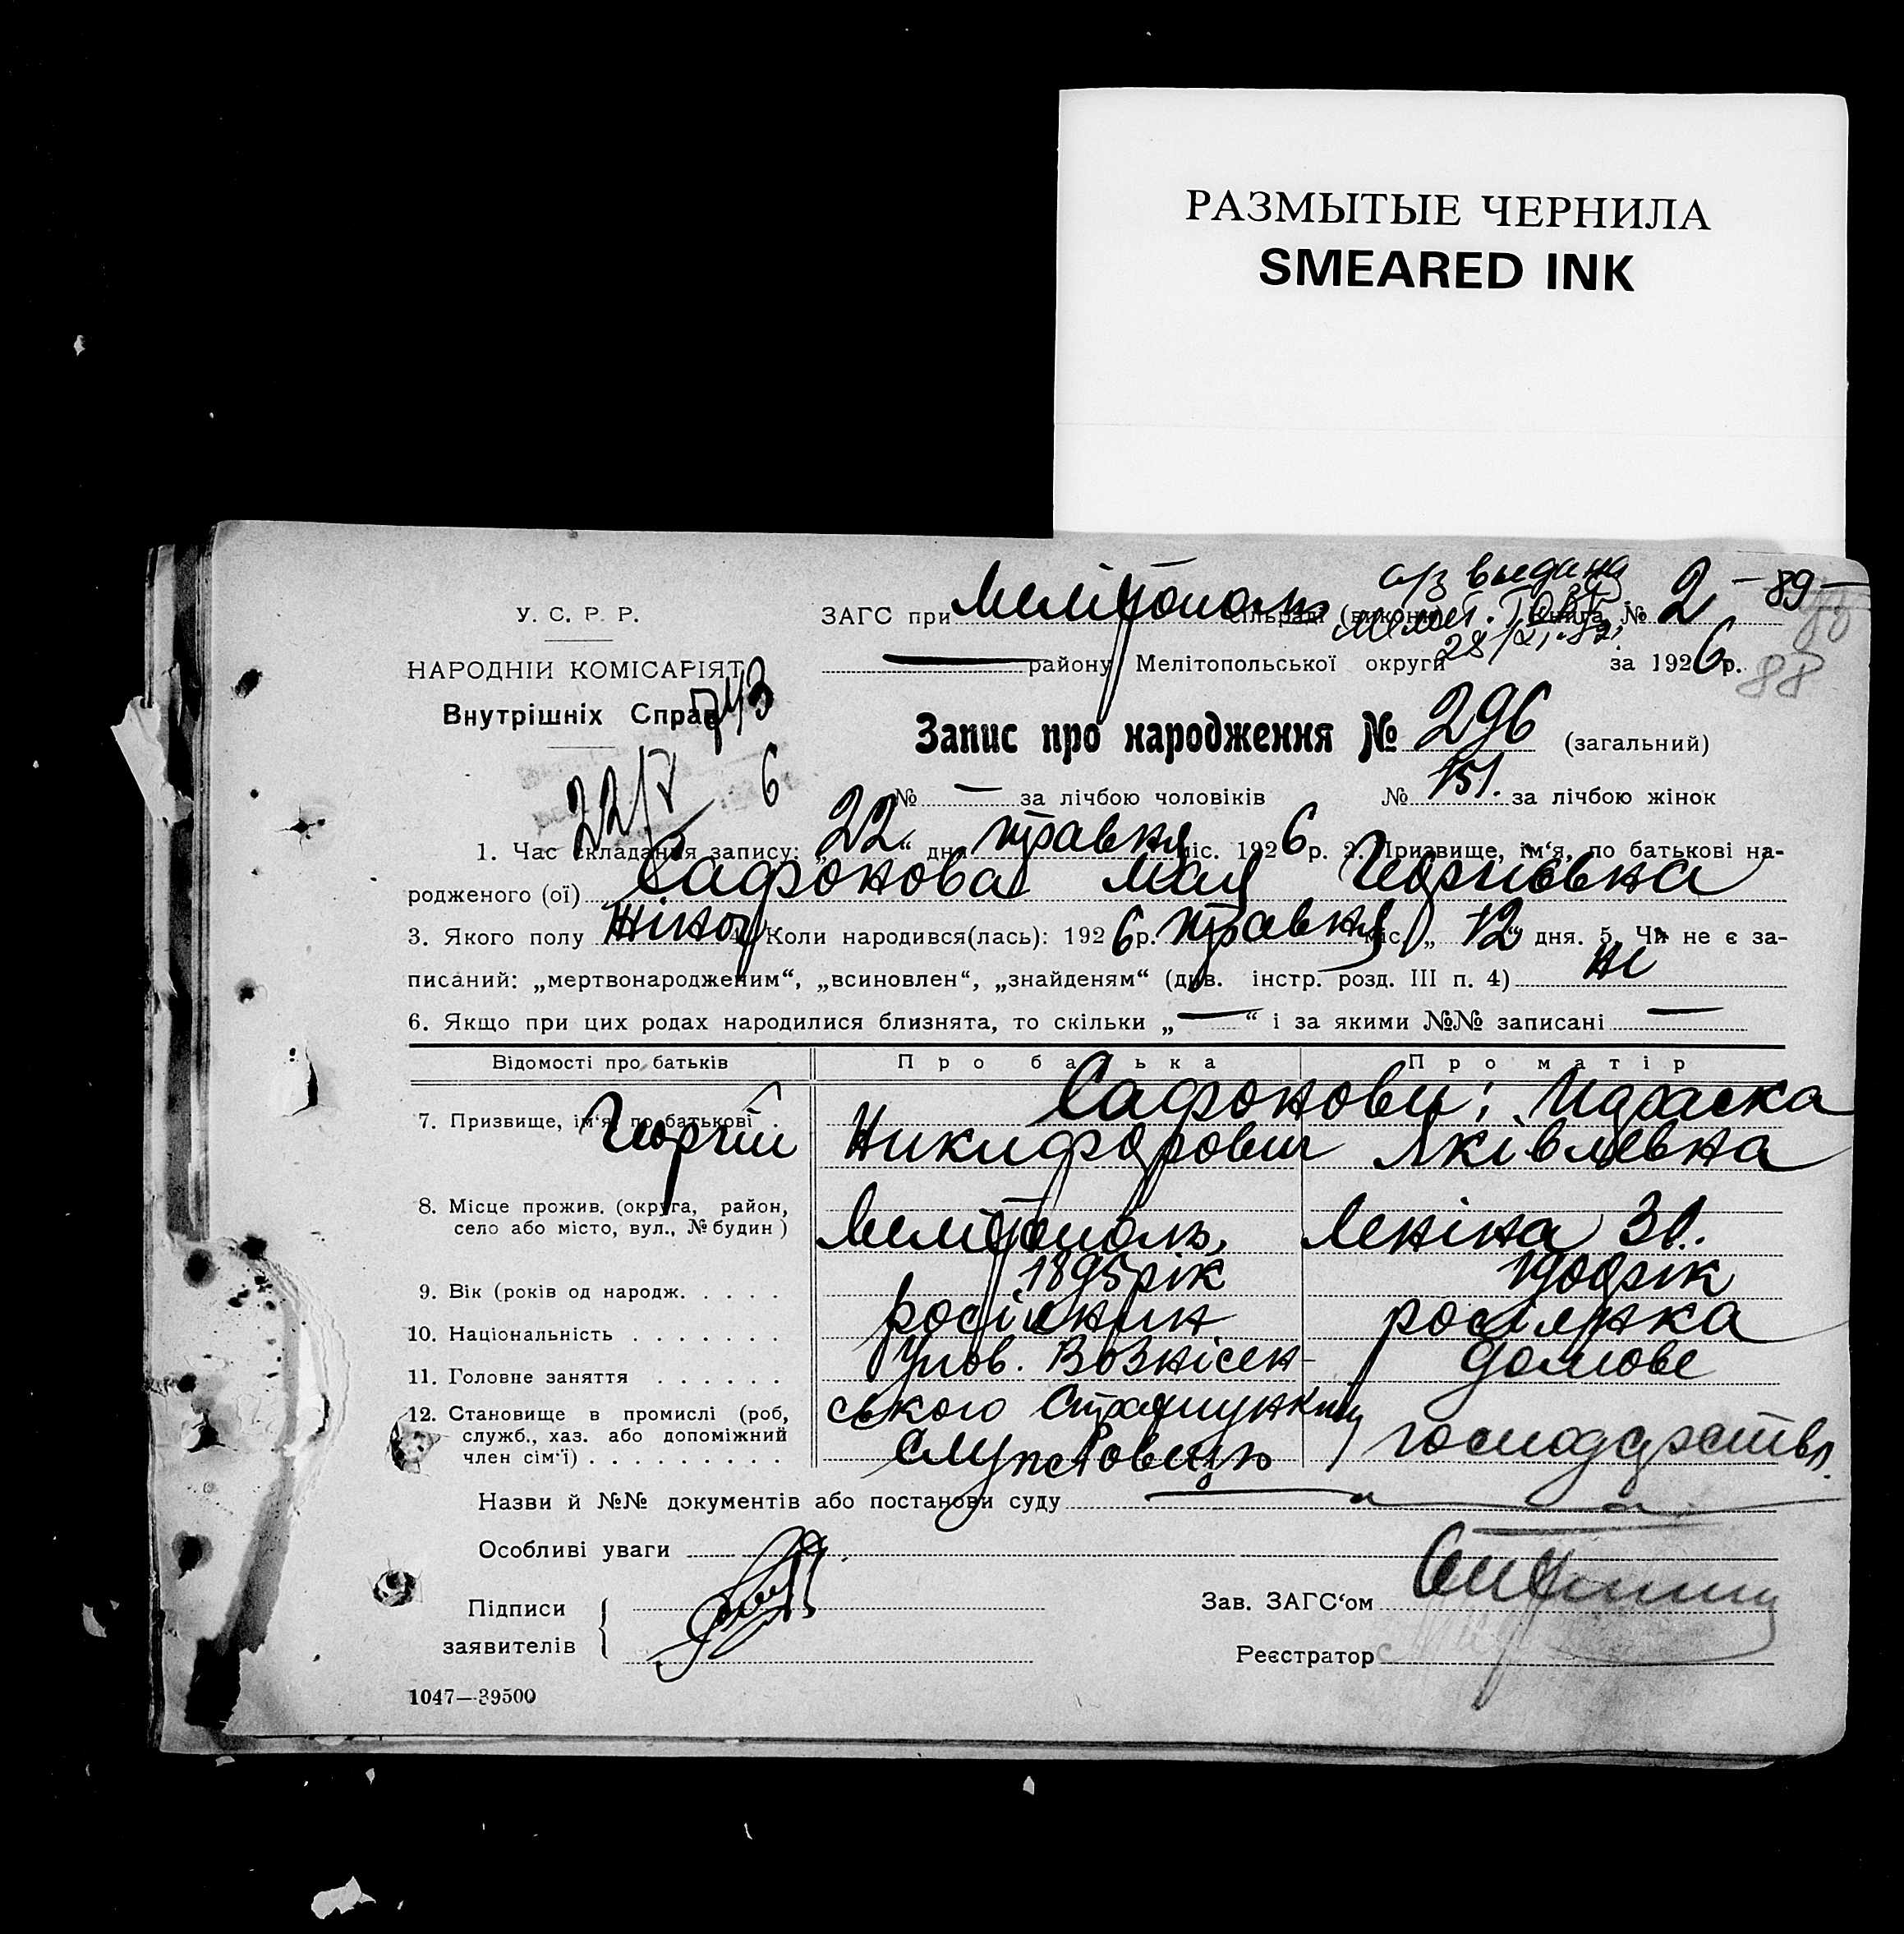 РАЗМЫТЫЕ ЧЕРНИЛА
SMEARED INK
с/в выдана
У. С. Р. Р.
ЗАГС при Мелітополь сільраді (викони) Книга № 2 -89-
НАРОДНІЙ КОМІСАРІЯТ
району Мелітопольської округи за 1926 р.
88
Внутрішніх Справ
743
Запис про народження № 296 (загальний)
22/V 6
№ — за лічбою чоловіків № 151. за лічбою жінок
1. Час складання запису: „22“ дня травня міс. 1926 р. 2. Призвище, ім‘я, по батькові на-
родженого (ої) Сафонова Мая Георгіевна
3. Якого полу жіноч. 4. Коли народився(лась): 1926 р. травня міс. „12“ дня. 5. Чи не є за-
писаний: „мертвонародженим“, „всиновлен“, „знайденям“ (див. інстр. розд. III п. 4) ні
6. Якщо при цих родах народилися близнята, то скільки „—“ і за якими №№ записані —
Відомості про батьків Про батька Про матір
Сафонови:
7. Призвище, ім‘я, по батькові
Георгій Никифорович Яківлевна
8. Місце прожив. (округа, район,
село або місто, вул., № будин)
Мелітополь, Леніна 30.
9. Вік (років од народж. 1895 рік
10. Національність росіянин росіянка
11. Головне заняття Упов. Вознісен- домове
12. Становище в промислі (роб,
служб., хаз. або допоміжний
член сім‘ї)
ського господарство.
Назви й №№ документів або постанови суду
Особливі уваги
Підписи
заявителів
Зав. ЗАГС‘ом
Реєстратор
1047—39500